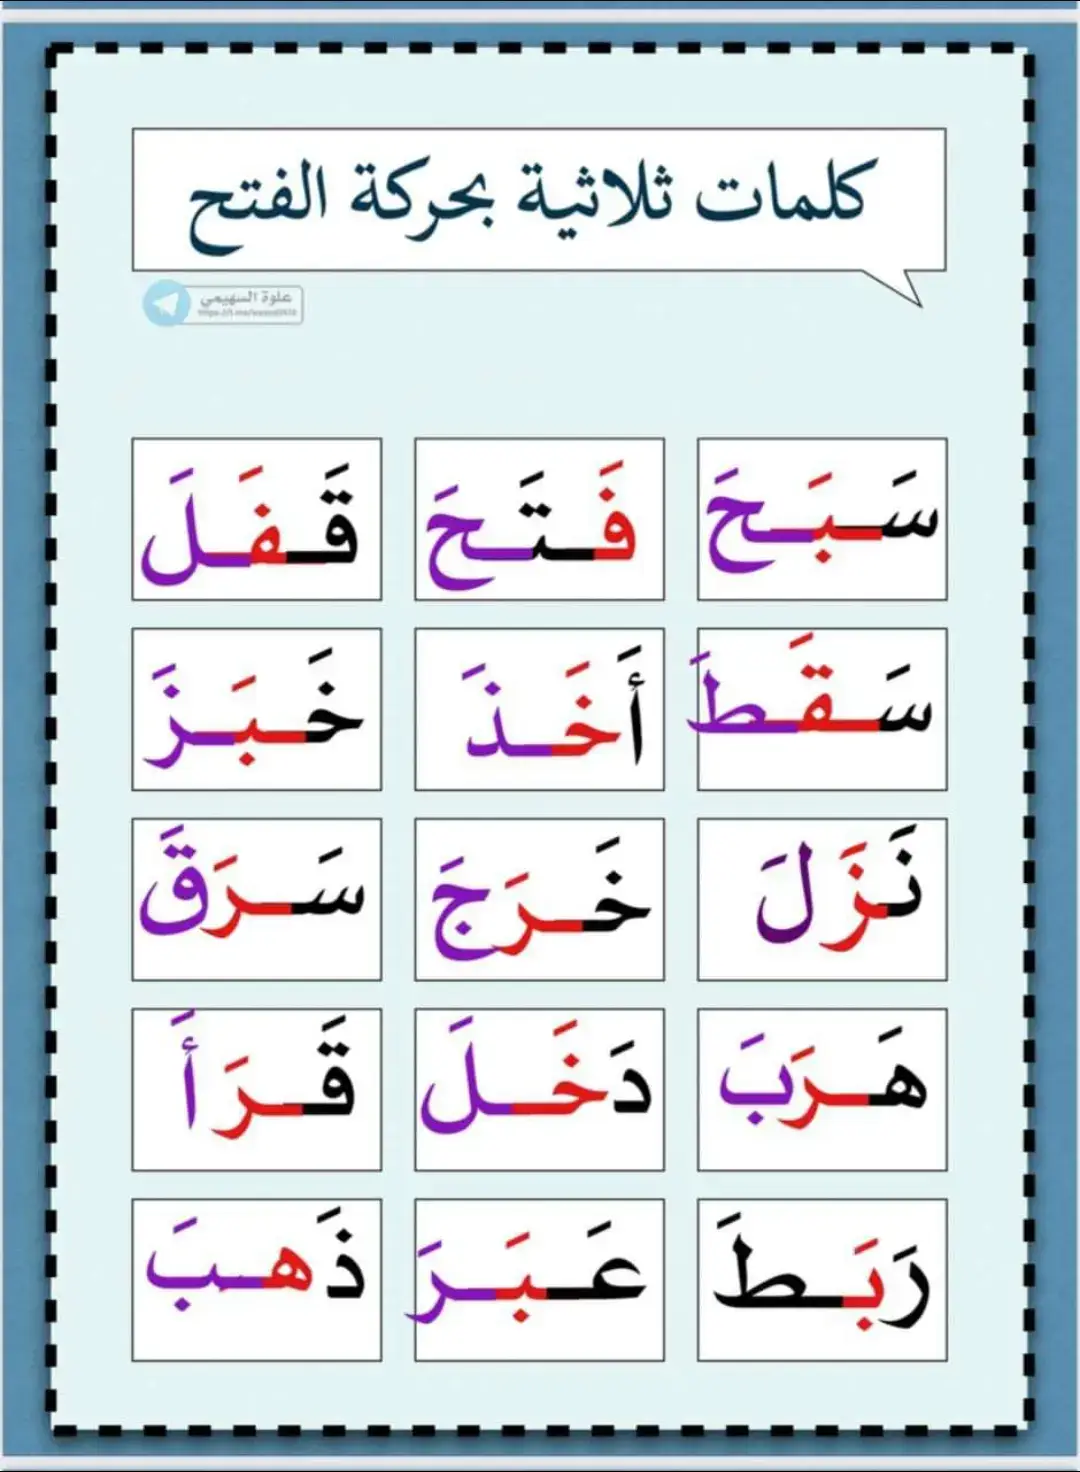 كلمات ثلاثية بحركة الفتح
علوة السهيمي
سَبَحَ فَتَحَ قَفَلَ
سَقَطَ أَخَذَ خَبَزَ
نَزَلَ خَرَجَ سَرَقَ
هَرَبَ دَخَلَ قَرَأَ
رَبَطَ عَبَرَ ذَهَبَ